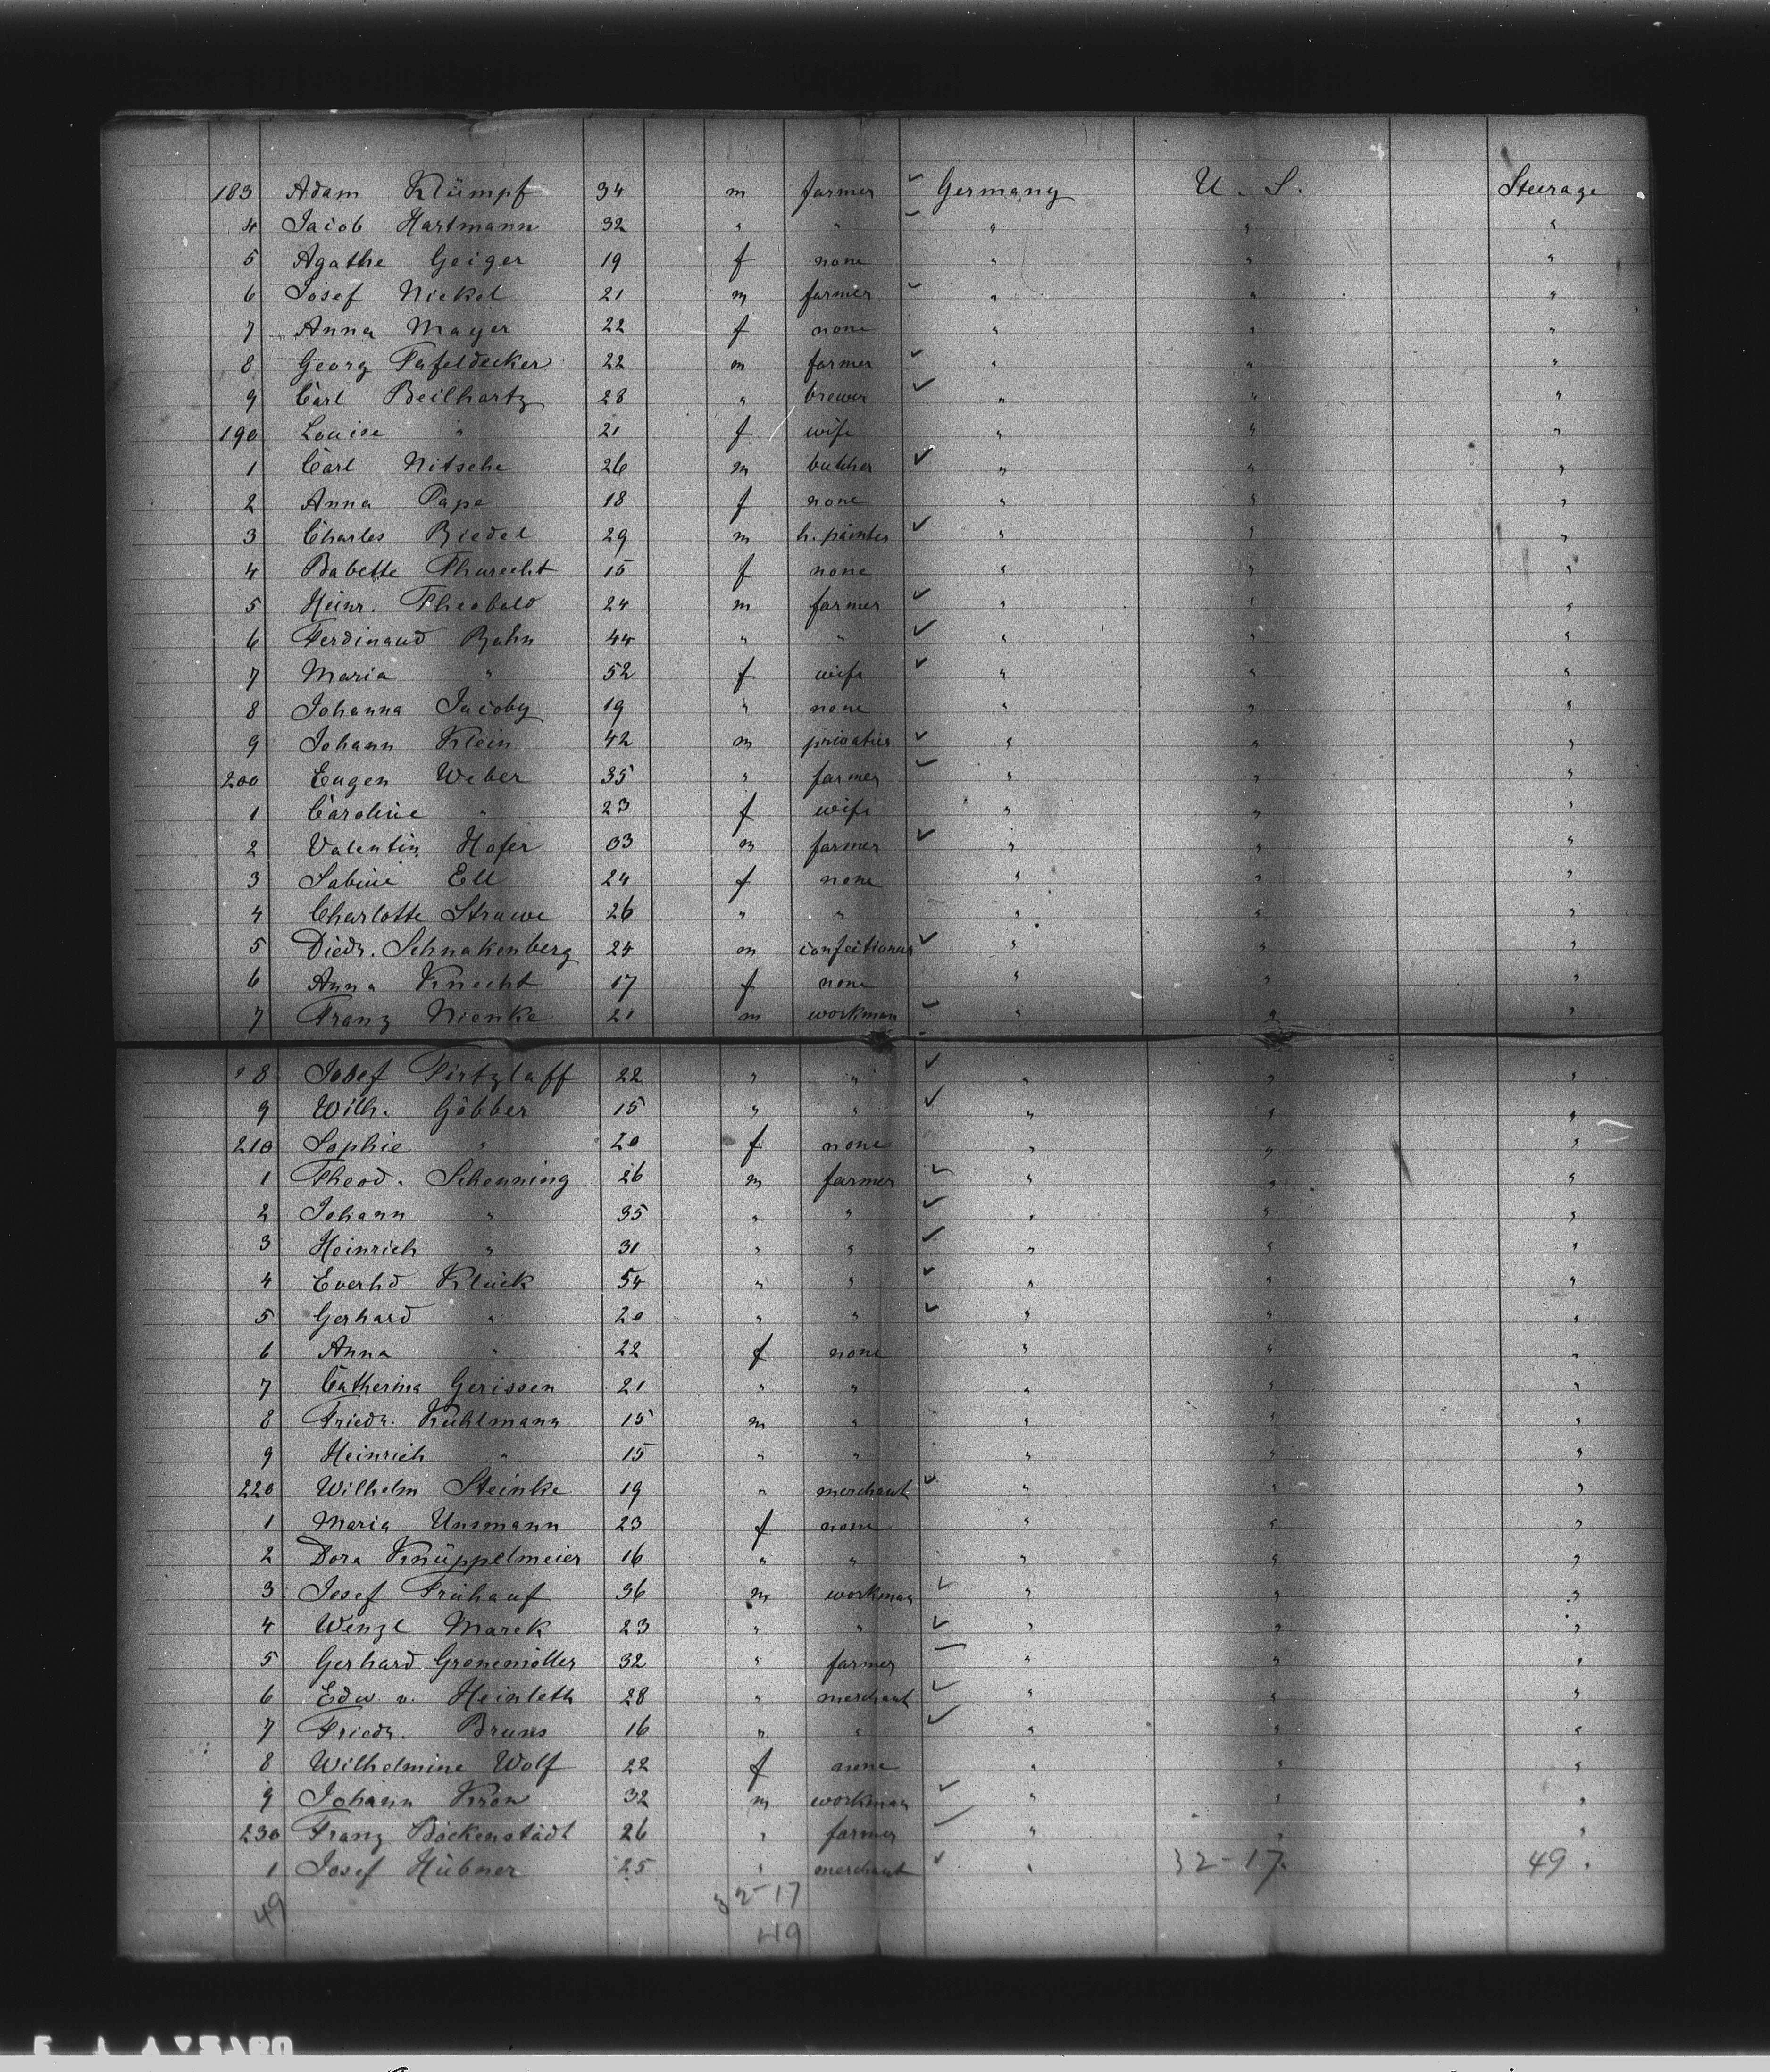 183 Adam Klümpf 34 m farmer ✓ Germany U. S. Steerage
4 Jacob Hartmann 32 " " ✓ " " "
5 Agathe Geiger 19 f none " " "
6 Josef Nickel 21 m farmer ✓ " " "
7 Anna Mayer 22 f none " " "
8 Georg Tafeldecker 22 m farmer ✓ " " "
9 Carl Beilhartz 28 " brewer ✓ " " "
190 Louise " 21 f wife " " "
1 Carl Nitsche 26 m butcher ✓ " " "
2 Anna Pape 18 f none " " "
3 Charles Riedel 29 m h. painter ✓ " " "
4 Babette Thurecht 15 f none " " "
5 Heinr. Theobald 24 m farmer ✓ " " "
6 Ferdinand Rahn 44 " " ✓ " " "
7 Maria " 52 f wife ✓ " " "
8 Johanna Jacoby 19 " none " " "
9 Johann Klein 42 m privatier ✓ " " "
200 Eugen Weber 35 " farmer ✓ " " "
1 Caroline " 23 f wife " " "
2 Valentin Hofer 33 m farmer ✓ " " "
3 Sabine Ell 24 f none " " "
4 Charlotte Struwe 26 " " " " "
5 Diedr. Schnakenberg 24 m confectioner ✓ " " "
6 Anna Knecht 17 f none " " "
7 Franz Nienke 21 m workman ✓ " " "
8 Josef Pirtzlaff 22 " " ✓ " " "
9 Wilh. Göbber 15 " " ✓ " " "
210 Sophie " 20 f none " " "
1 Theod. Schenning 26 m farmer ✓ " " "
2 Johann " 35 " " ✓ " " "
3 Heinrich " 31 " " ✓ " " "
4 Everhd Kluck 54 " " ✓ " " "
5 Gerhard " 20 " " ✓ " " "
6 Anna " 22 f none " " "
7 Catherina Gerissen 21 " " " " "
8 Friedr. Kuhlmann 15 m " " " "
9 Heinrich " 15 " " " " "
220 Wilhelm Steinke 19 " merchant ✓ " " "
1 Maria Unsmann 23 f none " " "
2 Dora Knüppelmeier 16 " " " " "
3 Josef Frühauf 36 m workman ✓ " " "
4 Wenzl Marek 23 " " ✓ " " "
5 Gerhard Gronemöller 32 " farmer ✓ " " "
6 Edw. v. Heinleth 28 " merchant ✓ " " "
7 Friedr. Bruns 16 " " ✓ " " "
8 Wilhelmine Wolf 22 f none " " "
9 Johann Kron 32 m workman ✓ " " "
230 Franz Böckenstädt 26 " farmer ✓ " " "
1 Josef Hübner 25 " merchant ✓ " 32-17. 49.
49 32-17
49